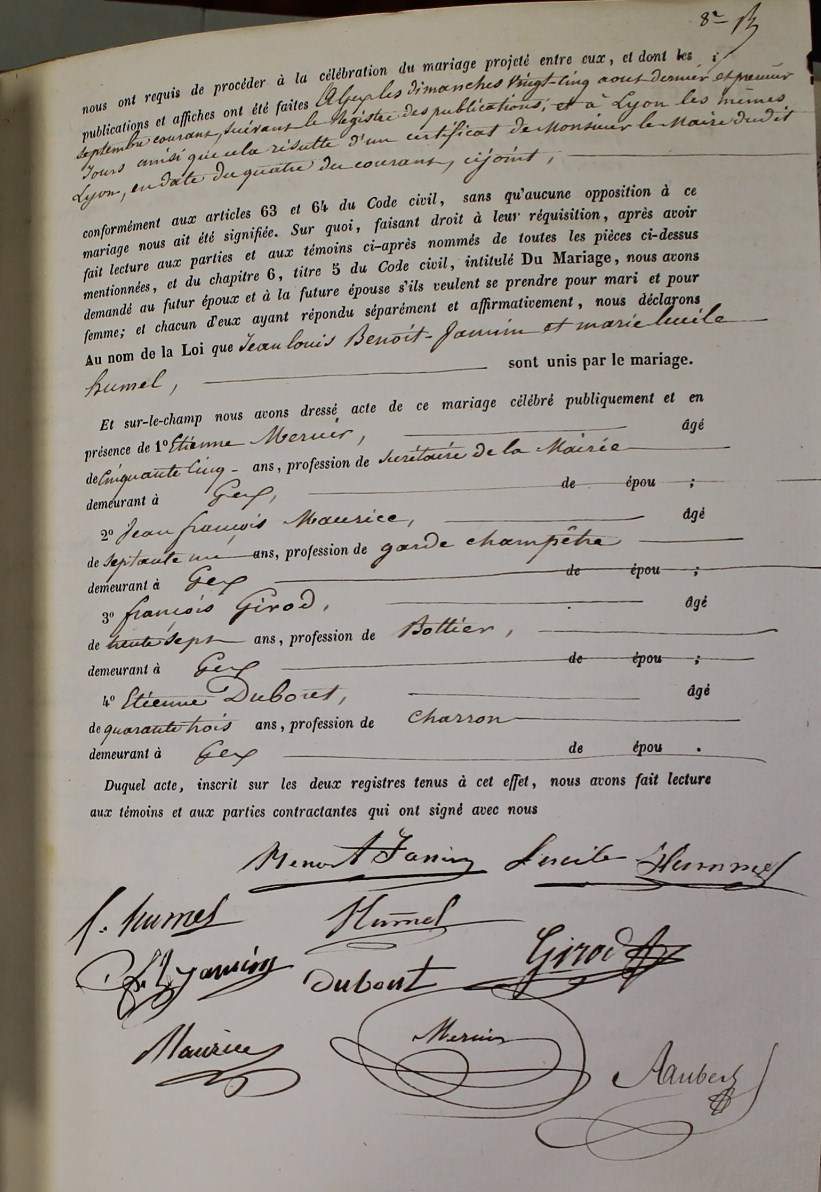 8e
nous ont requis de procéder à la célébration du mariage projeté entre eux, et dont les
publications et affiches ont été faites A Gex les dimanches vingt-cinq aout dernier et premier
septembre courant, suivant le Registre des publications, et à Lyon les mêmes
Jours ainsi que cela résulte d'un certificat de Monsieur le Maire dudit
Lyon, en date du quatre du courant, cijoint,
conformément aux articles 63 et 64 du Code civil, sans qu'aucune opposition à ce
mariage nous ait été signifiée. Sur quoi, faisant droit à leur réquisition, après avoir
fait lecture aux parties et aux témoins ci-après nommés de toutes les pièces ci-dessus
mentionnées, et du chapitre 6, titre 5 du Code civil, intitulé Du Mariage, nous avons
demandé au futur époux et à la future épouse s'ils veulent se prendre pour mari et pour
femme; et chacun d'eux ayant répondu séparément et affirmativement, nous déclarons
Au nom de la Loi que Jean louis Benoit-Jannin et marie lucile
humel, sont unis par le mariage.
Et sur-le-champ nous avons dressé acte de ce mariage célébré publiquement et en
présence de 1° Etienne Mercier, âgé
de Cinquante Cinq - ans, profession de secrétaire de la Mairie
demeurant à Gex, de épou ;
2° Jean françois Maurice, âgé
de septante un ans, profession de garde champêtre
demeurant à Gex de épou ;
3° françois Girod, âgé
de trente sept ans, profession de Bottier,
demeurant à Gex de épou ;
4° Etienne Dubout, âgé
de quarante trois ans, profession de charron
demeurant à Gex de épou .
Duquel acte, inscrit sur les deux registres tenus à cet effet, nous avons fait lecture
aux témoins et aux parties contractantes qui ont signé avec nous
Benoit Jannin Lucile Hummel
f. humel Humel
Jannin Dubout Girod
Maurice Mercier